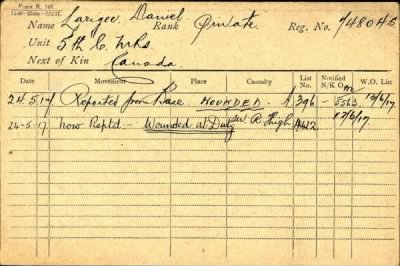 Form R. 149.
Name Larigee Daniel Rank Private Reg. No. 748045
Unit 5th C. M. Rs.
Next of Kin Canada
Date Movement Place Casualty List No. Notified N/K O W.O. List
24.5.17 Reported from Base WOUNDED. A 396 M 5563 13/6/17
24-5-17 Now Reptd - Wounded at Duty GSW R Thigh A412 17/6/17